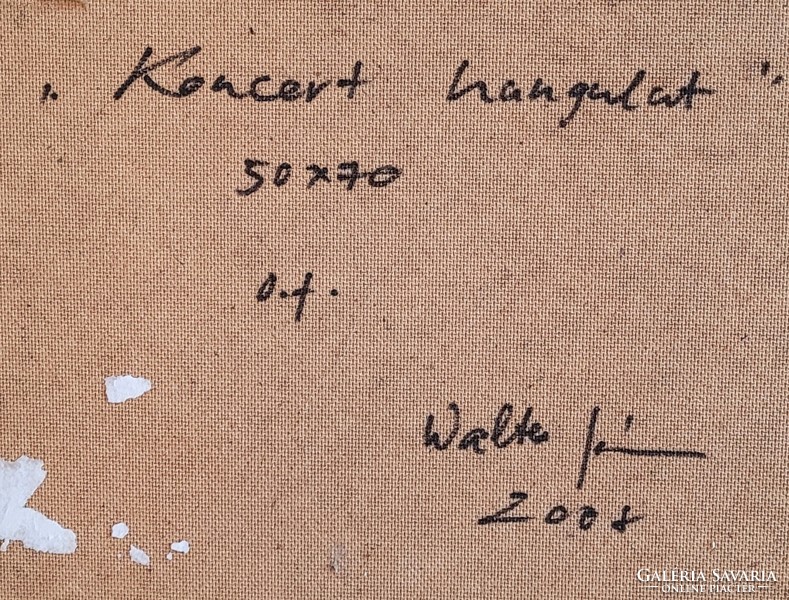 „Koncert hangulat"
50x70
o.f.
Walter
2008
GALÉRIA SAVARIA
ONLINE PIACTÉR